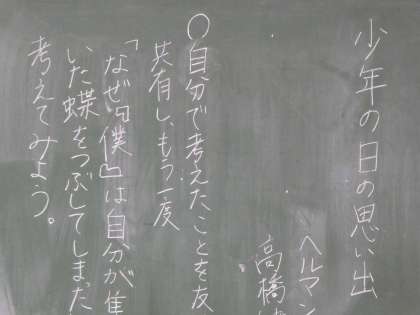 少年の日の思い出
ヘルマン
高橋
○自分で考えたことを友
共有し、もう一度
「なぜ『僕』は自分が集
いた蝶をつぶしてしまった
考えてみよう。